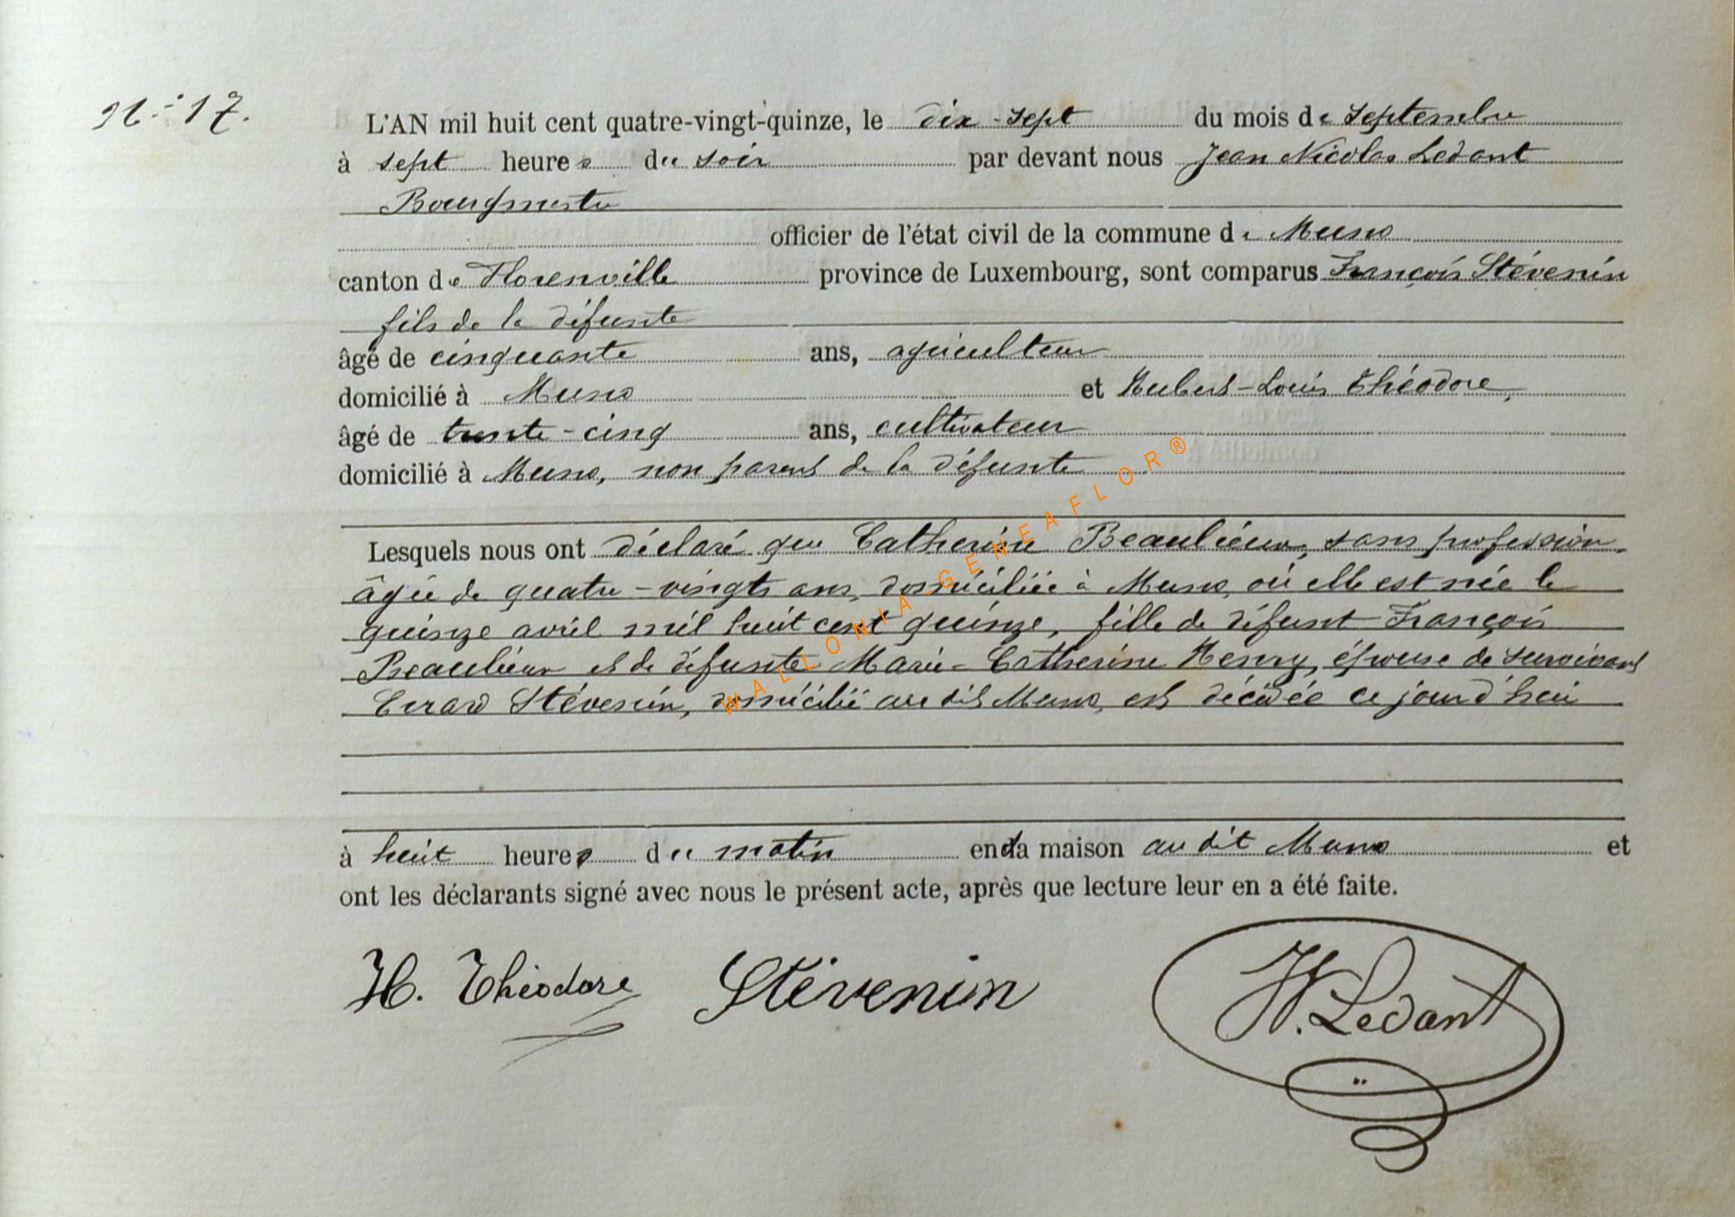 N.° 17.
L'AN mil huit cent quatre-vingt-quinze, le dix-sept du mois de Septembre
à sept heures du soir par devant nous Jean Nicolas Ledant
Bourgmestre
officier de l'état civil de la commune de Muno
canton de Florenville province de Luxembourg, sont comparus François Stévenin
fils de la défunte
âgé de cinquante ans, agriculteur
domicilié à Muno et Hubert-Louis Théodore,
âgé de trente-cinq ans, cultivateur
domicilié à Muno, non parent de la défunte
Lesquels nous ont déclaré que Catherine Beaulieux, sans profession,
âgée de quatre-vingts ans, domiciliée à Muno, où elle est née le
quinze avril mil huit cent quinze, fille de défunt François
Beaulieux et de défunte Marie-Catherine Henry, épouse de survivant
Erard Stévenin, domicilié au dit Muno, est décédée ce jourd'hui
à huit heures du matin en sa maison au dit Muno et
ont les déclarants signé avec nous le présent acte, après que lecture leur en a été faite.
H. Théodore Stévenin N. Ledant
WALLONIA-GENEAFLOR®